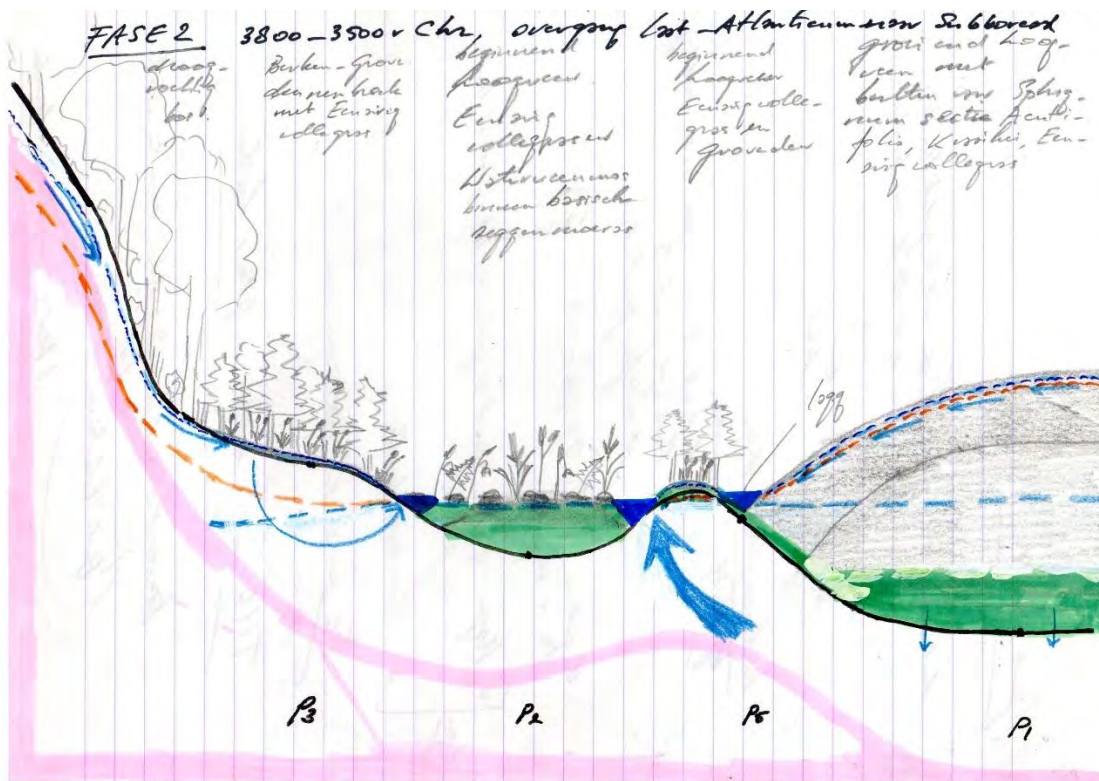 FASE 2 3800-3500 v Chr, overgang Laat-Atlanticum naar Subboreaal
droog-
vochtig
bos.
Berken-Grove
dennenbroek
met Eenarig
wollegras
beginnend
hoogveen
Eenarig
wollegras en
Waterveenmos
binnen basische
seggenmoeras
beginnend
hoogveen
Eenarig wolle-
gras en
Groveden
groeiend hoog-
veen met
bulten van Sphag-
num sectie Acuti-
folia, Kraaihei, Een-
arig wollegras
lagg
P3
P2
P5
P1